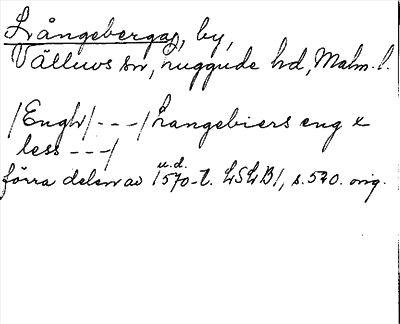 Långeberga, by,
Välluvs sn, Luggude hd, Malm. l.
/Engh/ - - - /Langebiers eng x
less - - -/
u.d.
förra delen av 1570-t. LSLB1, s. 520. orig.